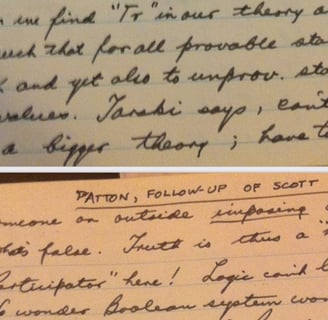 we find "Tr" in our theory a
such that for all provable sta
and yet also to unprov. sta
values. Tarski says, can't
a bigger theory; have t
PATTON, FOLLOW-UP OF SCOTT
omeone or outside imposing
hat's false. Truth is thus a
articipator" here! Logic can't b
wonder Boolean system won